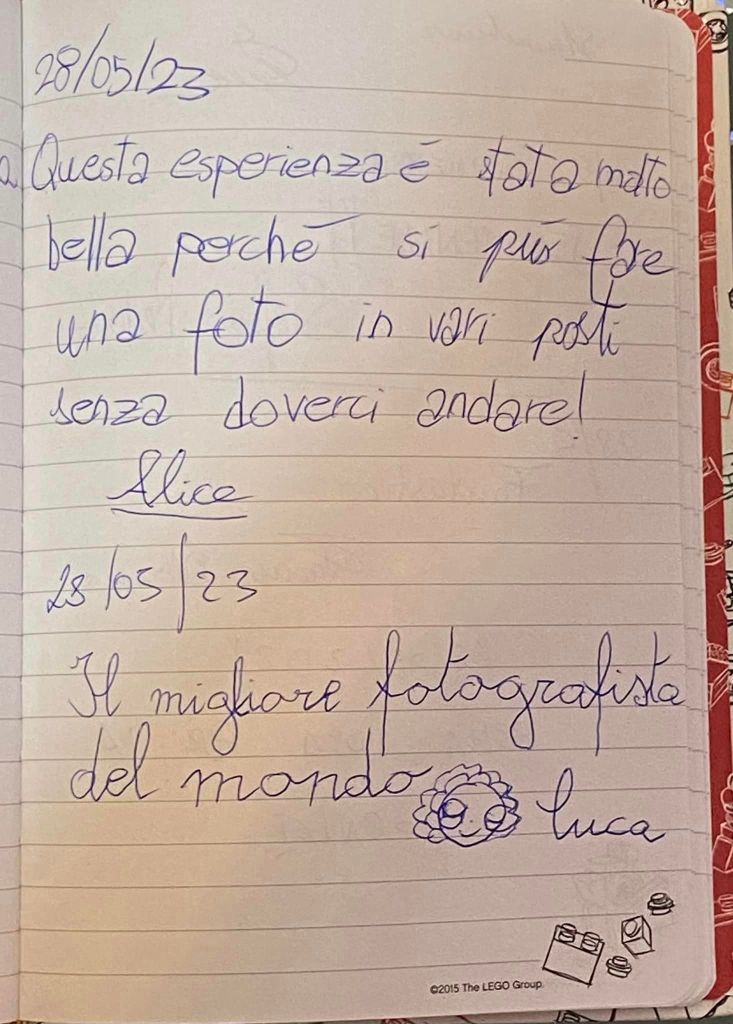 28/05/23
Questa esperienza é stata molto
bella perché si può fare
una foto in vari posti
senza doverci andare!
Alice
28/05/23
Il migliore fotografista
del mondo
luca
©2015 The LEGO Group.